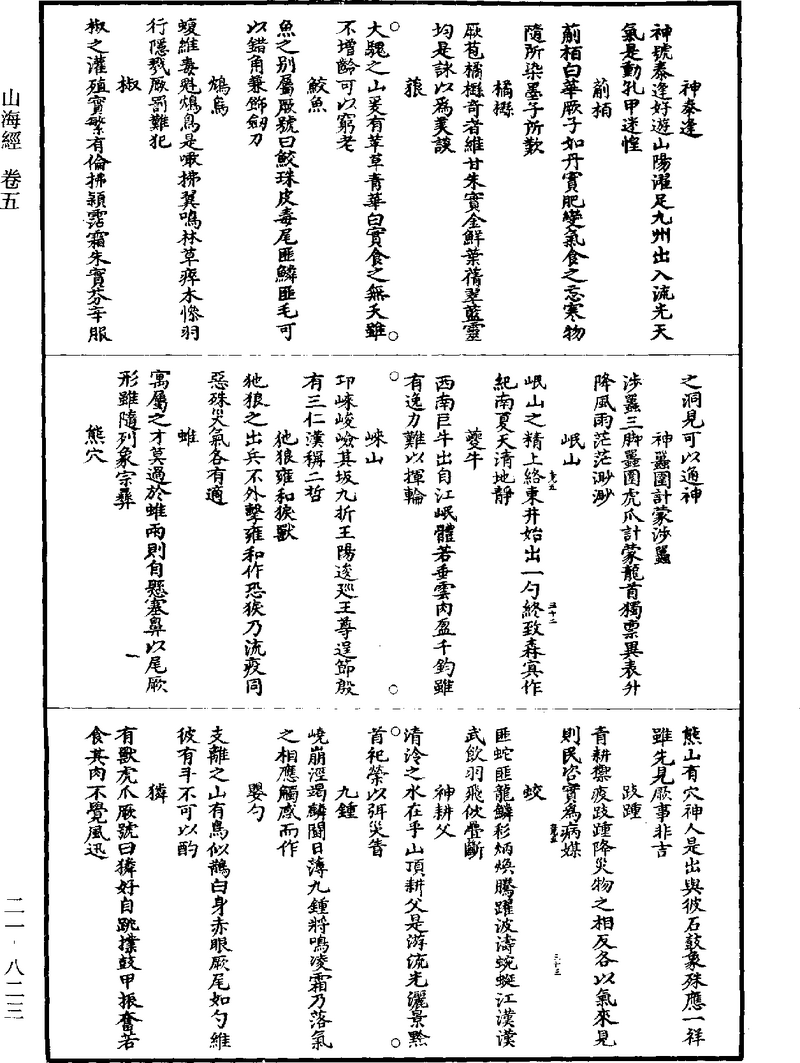 山海經　卷五
神泰逢
神號泰逢好遊山陽濯足九州出入流光天
氣是動孔甲迷惶
萴栢
萴栢白華厥子如丹實肥變氣食之忘寒物
隨所染墨子所歎
橘櫾
厥苞橘櫾奇者維甘朱實金鮮葉蒨翠藍靈
均是詠以為美談
䔄
大騩之山爰有苹草青華白實食之無夭雖
不增齡可以窮老
鮫魚
魚之別屬厥號曰鮫珠皮毒尾匪鱗匪毛可
以錯角兼飾劒刀
鴆鳥
蝮維毒魁鴆鳥是噉拂翼鳴林草瘁木慘羽
行隱戮厥罰難犯
椒
椒之灌殖實繁有倫拂頴霑霜朱實芬辛服
之洞見可以通神
神䰠圍計蒙涉䰠
涉䰠三脚䰠圍虎爪計蒙龍首獨稟異表升
降風雨茫茫渺渺
岷山
岷山之精上絡東井始出一勺終致森㝠作
紀南夏天清地靜
夔牛
西南巨牛出自江岷體若垂雲肉盈千鈞雖
有逸力難以揮輪
崍山
卭崍峻嶮其坂九折王陽逡廵王尊逞節殷
有三仁漢稱二哲
狏狼雍和㺉獸
狏狼之出兵不外擊雍和作恐㺉乃流疫同
惡殊災氣各有適
蜼
寓屬之才莫過於蜼雨則自懸塞鼻以尾厥
形雖隨列象宗彝
熊穴
熊山有穴神人是出與彼石鼓象殊應一祥
雖先見厥事非吉
跂踵
青耕禦疫跂踵降災物之相反各以氣來見
則民咨實為病媒
蛟
匪蛇匪龍鱗彩炳煥騰躍波濤蜿蜒江漢漢
武飲羽飛佽疊斷
神耕父
清泠之水在乎山頂耕父是游流光灑景黔
首祀禜以弭災眚
九鍾
嶢崩涇竭麟鬭日薄九鍾將鳴凌霜乃落氣
之相應觸感而作
嬰勺
支離之山有鳥似鵲白身赤眼厥尾如勺維
彼有斗不可以酌
獜
有獸虎爪厥號曰獜好自跳撲鼓甲振奮若
食其肉不覺風迅
二一·八二三